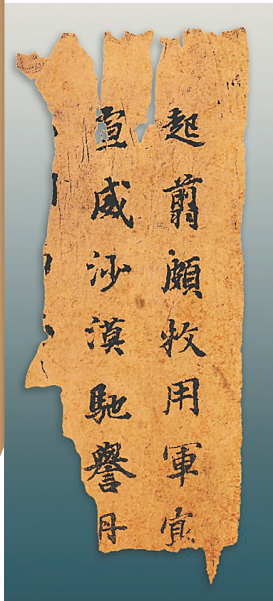 起翦頗牧用軍
宣威沙漠馳譽丹